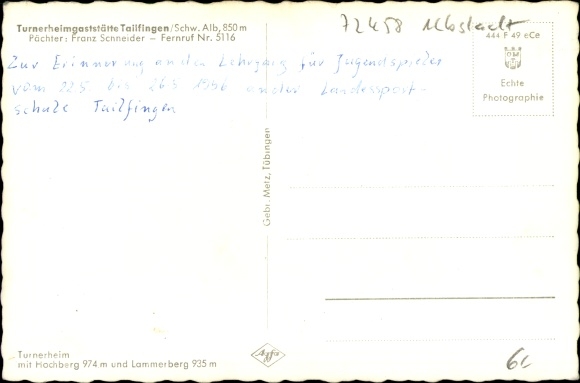 Turnerheimgaststätte Tailfingen/Schw. Alb, 850 m
Pächter: Franz Schneider – Fernruf Nr. 5116
72458 Albstadt
444 F 49 eCe
Echte
Photographie
Zur Erinnerung an den Lehrgang für Jugendspieler
vom 22.5 bis 26.5 1956 an der Landessport-
schule Tailfingen
Gebr. Metz, Tübingen
Turnerheim
mit Hochberg 974 m und Lammerberg 935 m
Agfa